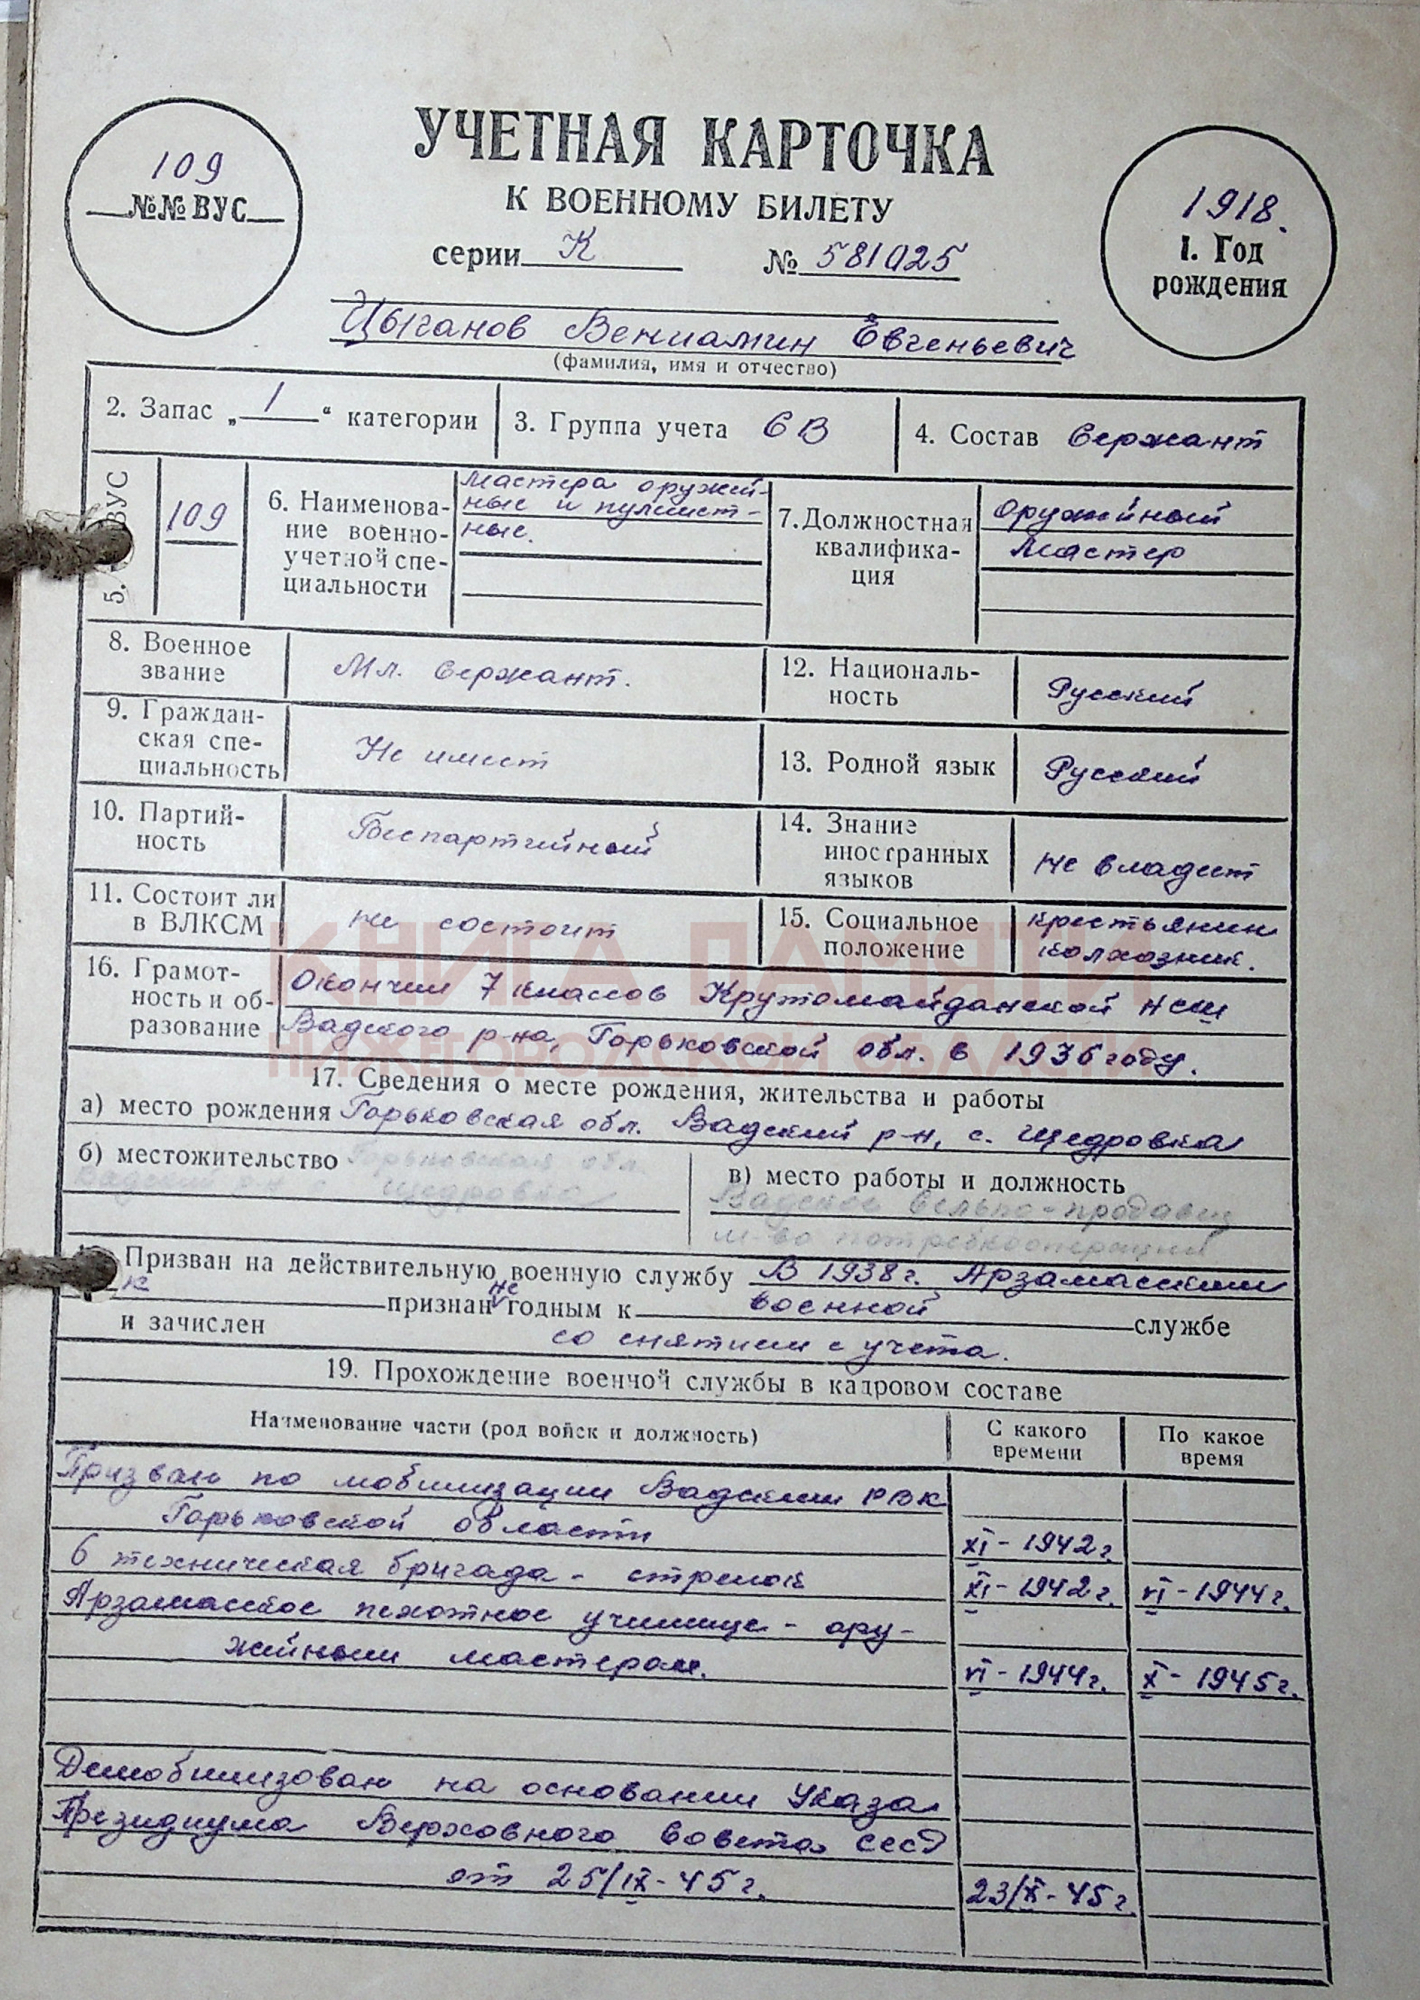 УЧЕТНАЯ КАРТОЧКА
К ВОЕННОМУ БИЛЕТУ
109
№№ ВУС
серии К № 581025
1918.
1. Год
рождения
Цыганов Вениамин Евгеньевич
(фамилия, имя и отчество)
2. Запас „ 1 “ категории
3. Группа учета СВ
4. Состав Сержант
5. ВУС
109
6. Наименова-
ние военно-
учетной спе-
циальности
Мастера оружей-
ные и пулемет-
ные.
7. Должностная
квалифика-
ция
Оружейный
Мастер
8. Военное
звание
Мл. Сержант.
12. Националь-
ность
Русский
9. Граждан-
ская спе-
циальность
Не имеет
13. Родной язык
Русский
10. Партий-
ность
Беспартийный
14. Знание
иностранных
языков
Не владеет
11. Состоит ли
в ВЛКСМ
не состоит
15. Социальное
положение
Крестьянин
колхозник.
16. Грамот-
ность и об-
разование
Окончил 7 классов Крутомайданской НСШ
Вадского р-на, Горьковской обл. в 1936 году.
КНИГА ПАМЯТИ
НИЖЕГОРОДСКОЙ ОБЛАСТИ
17. Сведения о месте рождения, жительства и работы
а) место рождения Горьковская обл. Вадский р-н, с. Щедровка
б) местожительство Горьковская обл.
Вадский р-н с. Щедровка
в) место работы и должность
Вадское сельпо - продавец
м-во потребкооперации
Призван на действительную военную службу В 1938 г. Арзамасским
К признан не годным к военной службе
и зачислен со снятием с учета.
19. Прохождение военной службы в кадровом составе
Наименование части (род войск и должность)
С какого
времени
По какое
время
Призван по мобилизации Вадским РВК
Горьковской области XI - 1942 г.
6 техническая бригада - стрелок XI - 1942 г. VI - 1944 г.
Арзамасское пехотное училище - ору-
жейным мастером. VI - 1944 г. X - 1945 г.
Демобилизован на основании Указа
Президиума Верховного Совета СССР
от 25/IX - 45 г. 23/X - 45 г.